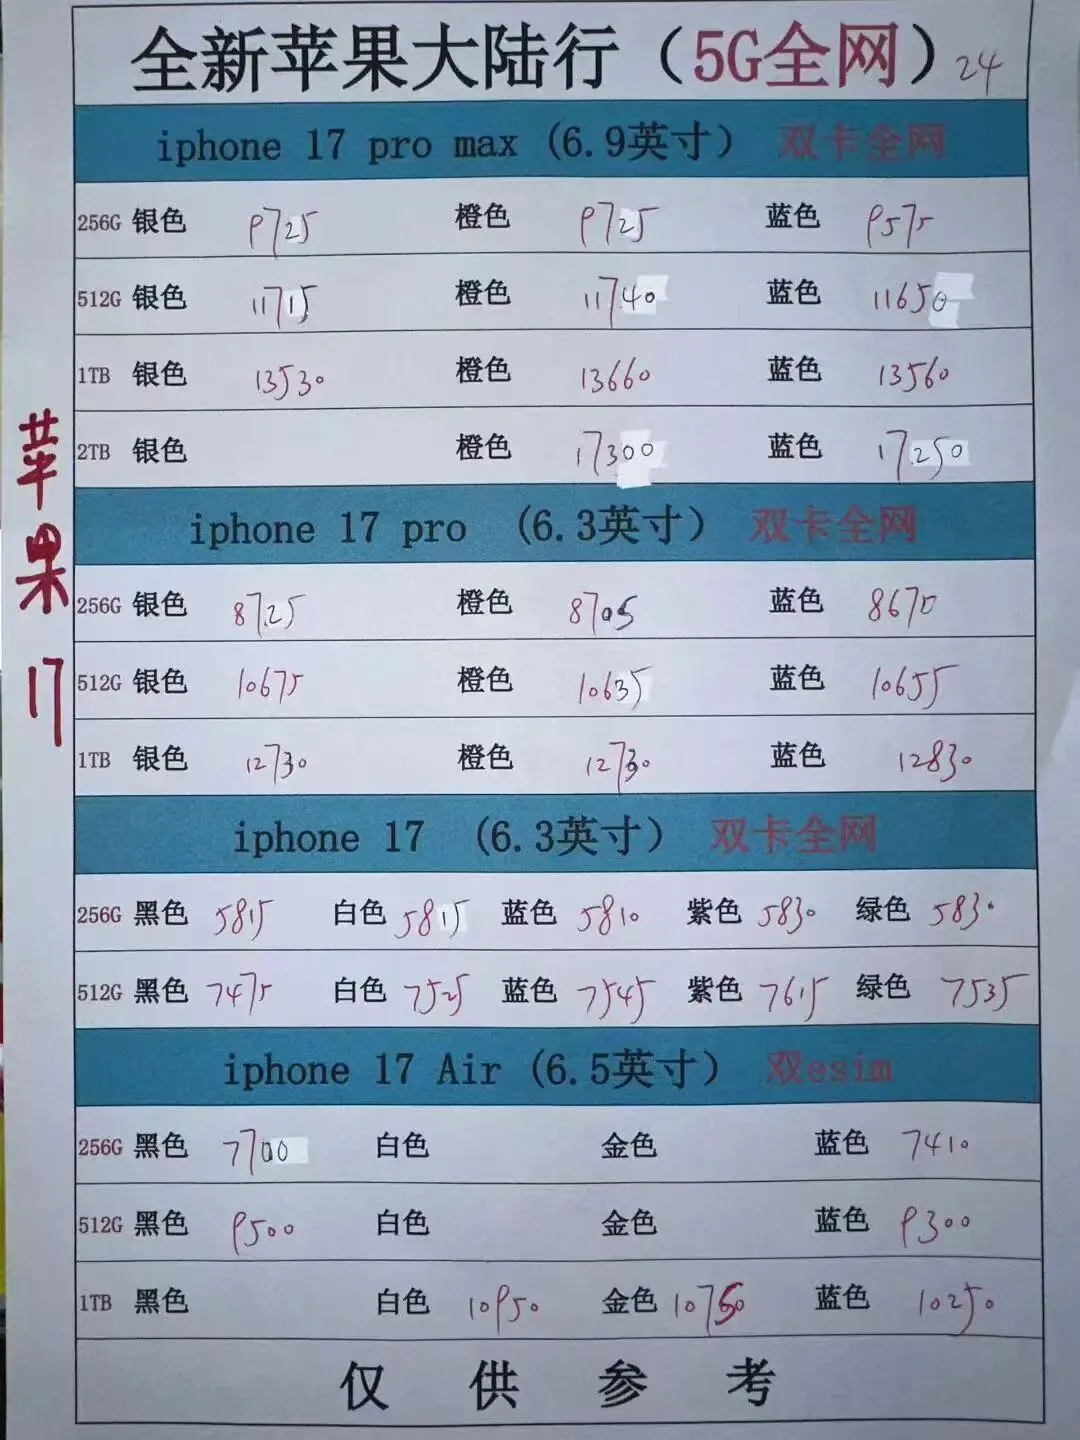 全新苹果大陆行（5G全网）24
iphone 17 pro max (6.9英寸） 双卡全网
256G 银色 9725 橙色 9725 蓝色 9575
512G 银色 11715 橙色 11740 蓝色 11650
1TB 银色 13530 橙色 13660 蓝色 13560
2TB 银色 橙色 17300 蓝色 17250
iphone 17 pro （6.3英寸） 双卡全网
256G 银色 8725 橙色 8705 蓝色 8670
512G 银色 10675 橙色 10635 蓝色 10655
1TB 银色 12730 橙色 12730 蓝色 12830
iphone 17 （6.3英寸） 双卡全网
256G 黑色 5815 白色 5815 蓝色 5810 紫色 5830 绿色 5830
512G 黑色 7475 白色 7525 蓝色 7545 紫色 7615 绿色 7535
iphone 17 Air (6.5英寸） 双esim
256G 黑色 7700 白色 金色 蓝色 7410
512G 黑色 9500 白色 金色 蓝色 9300
1TB 黑色 白色 10950 金色 10750 蓝色 10250
仅供参考
苹果17